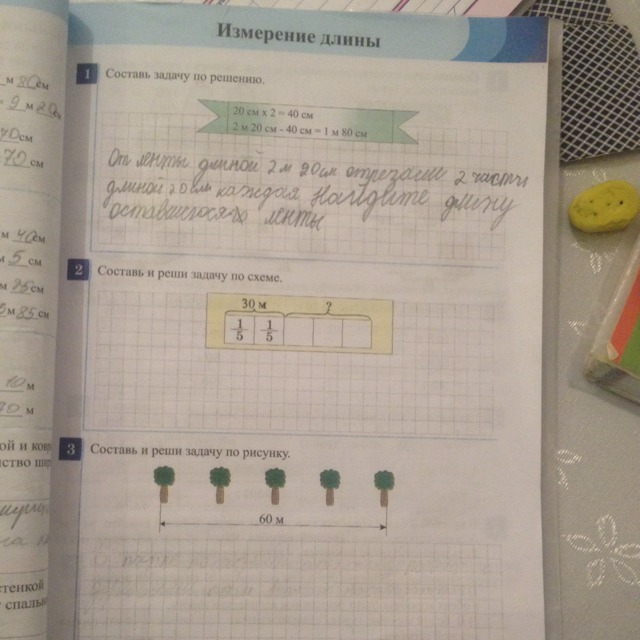 Измерение длины
1 Составь задачу по решению.
20 см х 2 = 40 см
2 м 20 см - 40 см = 1 м 80 см
От ленты длиной 2 м 20 см отрезали 2 части
длиной 20 см каждая Найдите длину
оставшегося ленты
2 Составь и реши задачу по схеме.
30 м ?
1/5 1/5
3 Составь и реши задачу по рисунку.
60 м
м 80 см
9 м 20 см
70 см
м 40 см
м 5 см
м 85 см
м 85 см
10 м
м
ой и ков
нство ши
стенкой
спаль